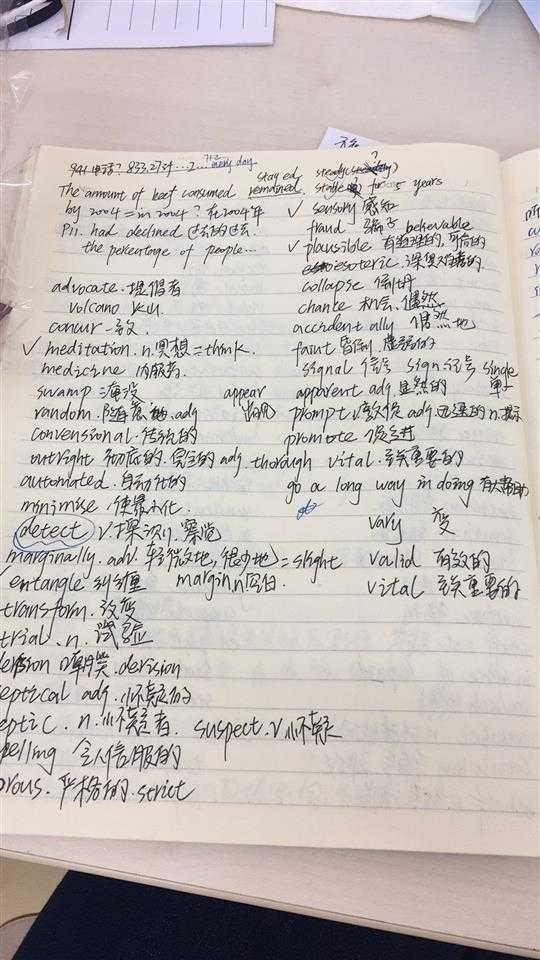 941 电话? 833.27对...2... every day
The amount of beef consumed stayed remained steady stable for 5 years
by 2004 = in 2004? 在2004年
P11. had declined 过去的过去.
the percentage of people...
advocate. 提倡者
volcano 火山
concur 一致
✓ meditation. n. 冥想 = think.
medicine 内服药.
swamp 淹没
random. 随意的. adj
convensional. 传统的
outright 彻底的. 完全的 adj. thorough
automated. 自动化的
minimise. 使最小化
detect v. 探测. 察觉
marginally. adv. 轻微地, 很少地 = slight
margin n 空白.
entangle 纠缠
transform. 改变
trial. n. 试验
derision 嘲笑. derision
eptical adj. 怀疑的
eptic. n. 怀疑者. suspect. v 怀疑
pelling 令人信服的
orous. 严格的. strict
✓ sensory 感知
fraud 骗子 believable
✓ plausible 有道理的, 可信的
esoteric. 深奥难懂的.
collapse 倒坍
chance 机会. 偶然
accident ally 偶然地
faint 昏倒 虚弱的
signal 信号 sign 记号 single 单一
appear 出现 apparent adj. 显然的
prompt v. 敦促 adj 迅速的 n. 提示
promote 促进
vital. 至关重要的
go a long way in doing 有大帮助
vary 变
valid 有效的
vital 至关重要的